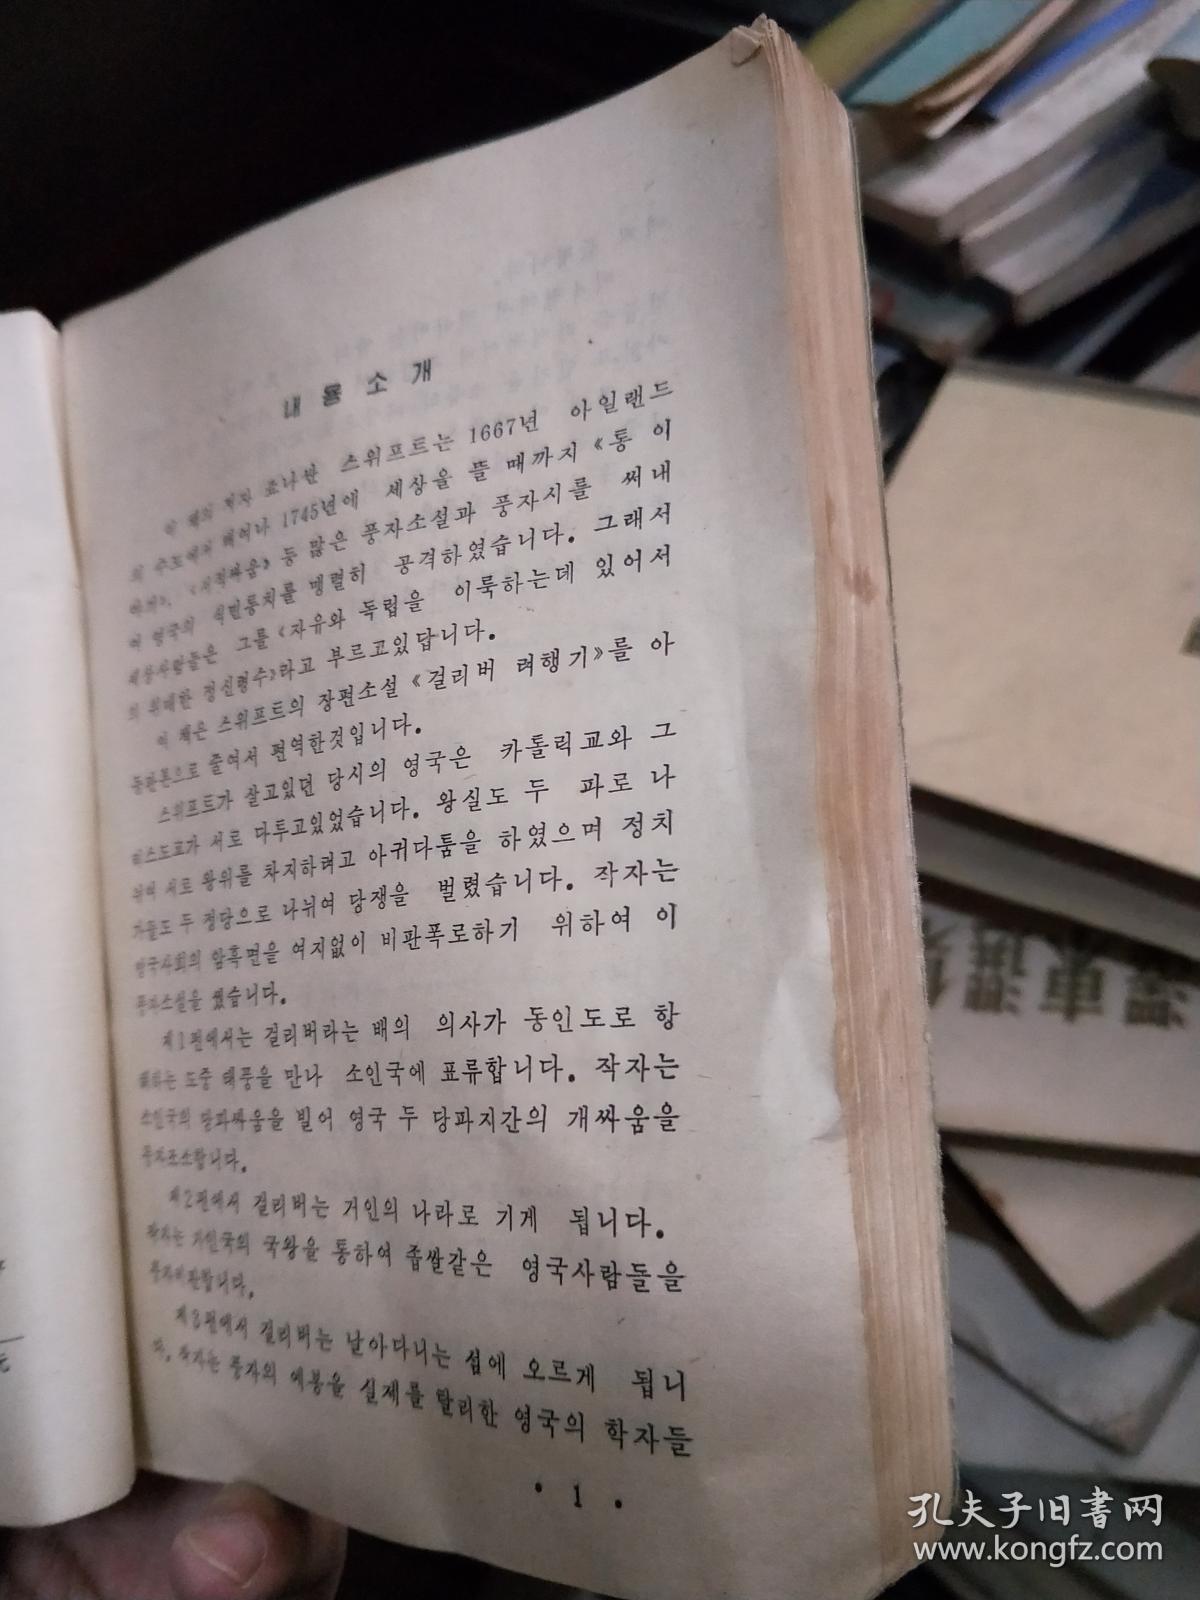 내 용 소 개
이 책의 저자 죠나싼 스위프트는 1667년 아일랜드
의 수도에서 태여나 1745년에 세상을 뜰 때까지 《통 이
야기》, 《서적싸움》 등 많은 풍자소설과 풍자시를 써내
여 영국의 식민통치를 맹렬히 공격하였습니다. 그래서
세상사람들은 그를 《자유와 독립을 이룩하는데 있어서
의 위대한 정신령수》라고 부르고있답니다.
이 책은 스위프트의 장편소설 《걸리버 려행기》를 아
동판본으로 줄여서 편역한것입니다.
스위프트가 살고있던 당시의 영국은 카톨릭교와 그
리스도교가 서로 다투고있었습니다. 왕실도 두 파로 나
뉘여 서로 왕위를 차지하려고 아귀다툼을 하였으며 정치
가들도 두 정당으로 나뉘여 당쟁을 벌렸습니다. 작자는
영국사회의 암흑면을 여지없이 비판폭로하기 위하여 이
풍자소설을 썼습니다.
제1편에서는 걸리버라는 배의 의사가 동인도로 항
해하는 도중 태풍을 만나 소인국에 표류합니다. 작자는
소인국의 당파싸움을 빌어 영국 두 당파지간의 개싸움을
풍자조소합니다.
제2편에서 걸리버는 거인의 나라로 기게 됩니다.
작자는 거인국의 국왕을 통하여 좁쌀같은 영국사람들을
풍자비판합니다.
제3편에서 걸리버는 날아다니는 섬에 오르게 됩니
다. 작자는 풍자의 예봉을 실제를 탈리한 영국의 학자들
• 1 •
孔夫子旧书网
www.kongfz.com